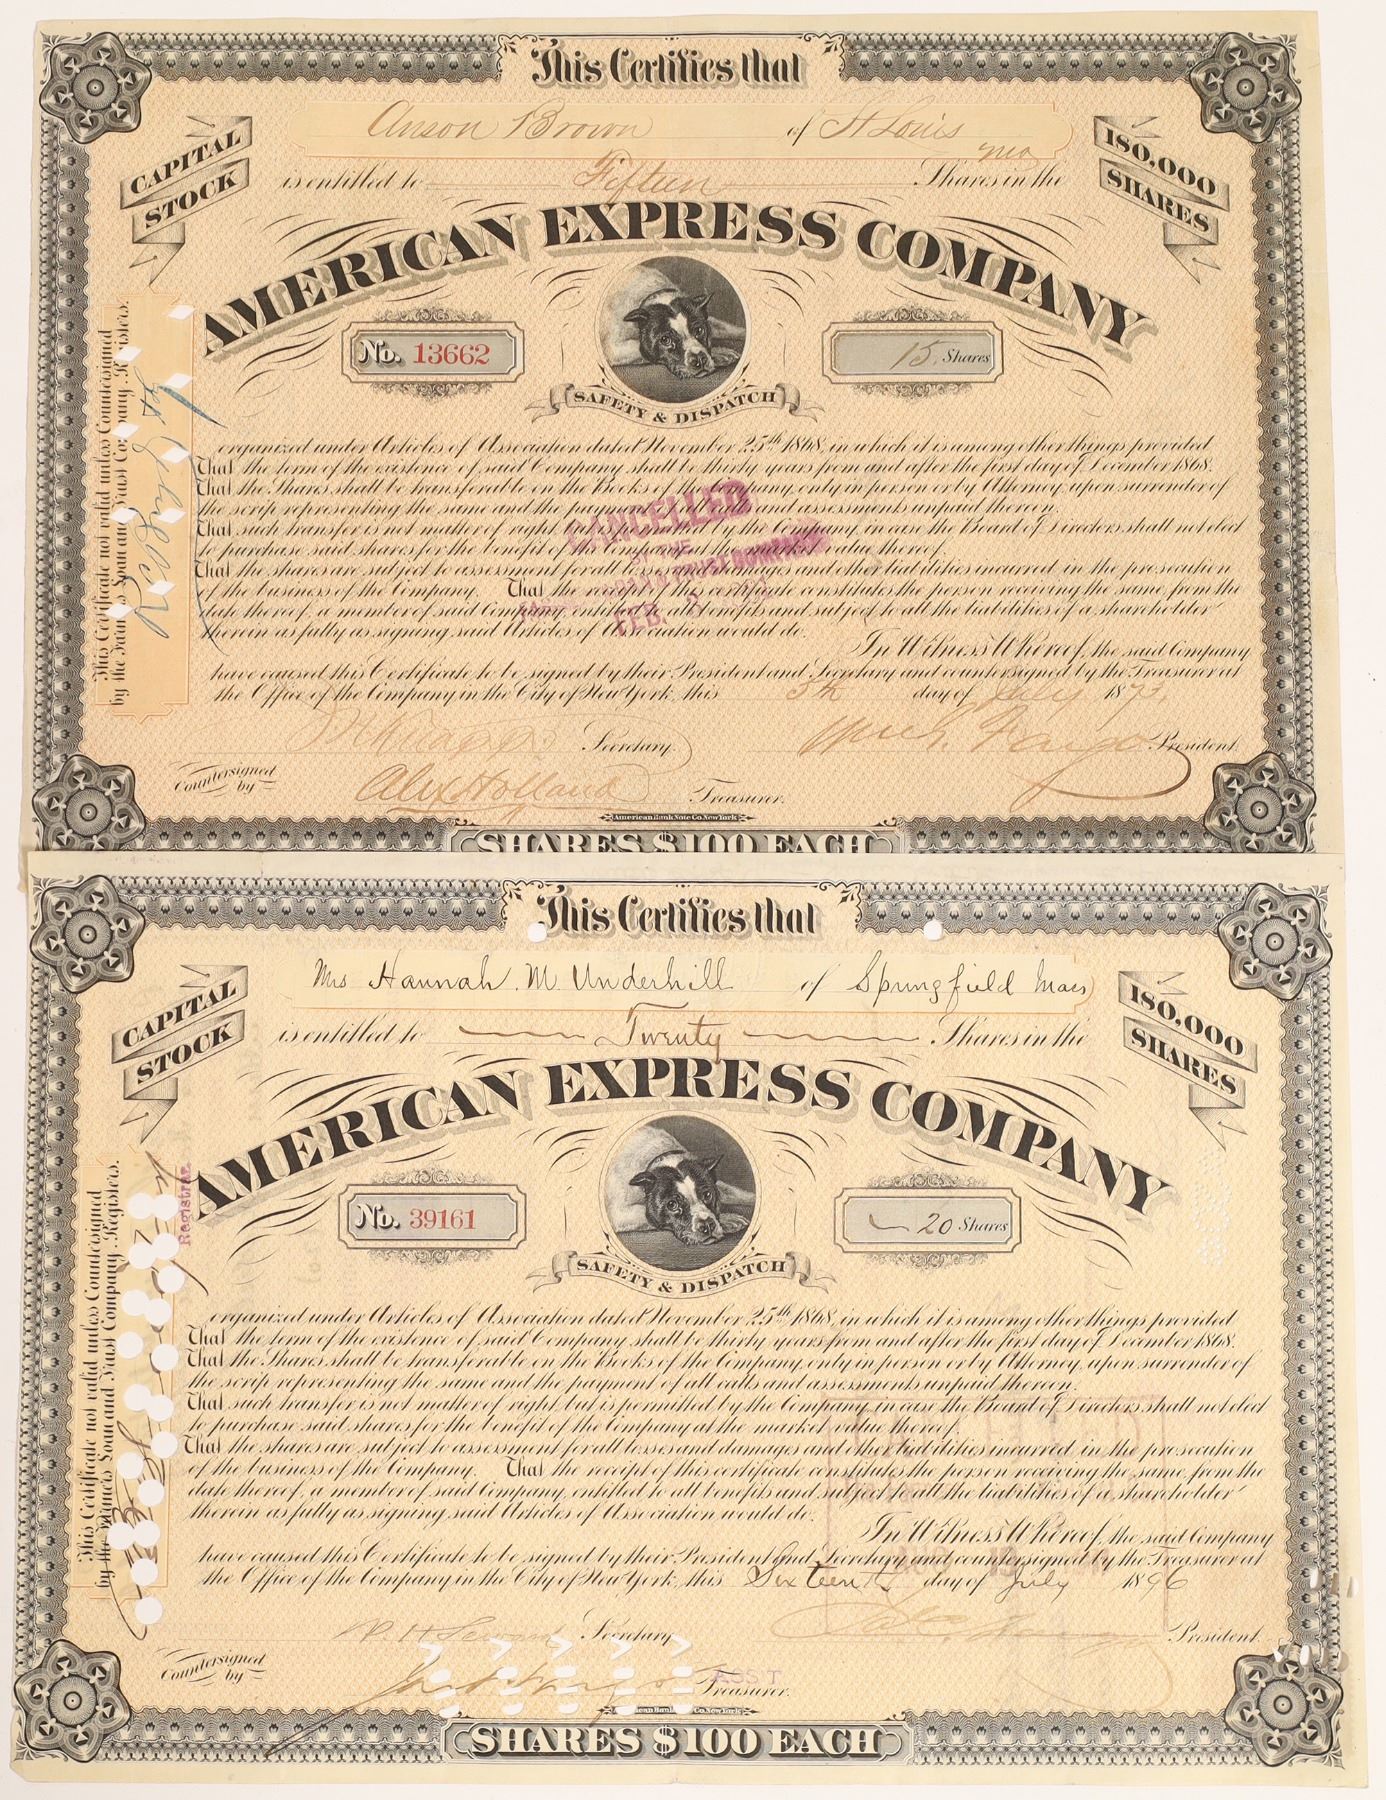 This Certifies that
Anson Brown of St Louis
Mo
CAPITAL STOCK
180,000 SHARES
is entitled to Fifteen Shares in the
AMERICAN EXPRESS COMPANY
No. 13662
15 Shares
SAFETY & DISPATCH
This Certificate not valid unless Countersigned
by the Farmers Loan and Trust Company, Registers.
organized under Articles of Association dated November 25th 1868, in which it is among other things provided
That the term of the existence of said Company shall be thirty years from and after the first day of December 1868.
That the Shares shall be transferable on the Books of the Company, only in person or by Attorney, upon surrender of
the scrip representing the same and the payment of all calls and assessments unpaid thereon.
That such transfer is not matter of right, but is permitted by the Company, in case the Board of Directors shall not elect
to purchase said shares for the benefit of the Company at the market value thereof.
That the shares are subject to assessment for all losses and damages and other liabilities incurred in the prosecution
of the business of the Company. That the receipt of this certificate constitutes the person receiving the same, from the
date thereof, a member of said Company, entitled to all benefits and subject to all the liabilities of a shareholder
therein as fully as signing said Articles of Association would do.
CANCELLED
BY THE
FARMERS LOAN & TRUST COMPANY
FEB.
In Witness Whereof, the said Company
have caused this Certificate to be signed by their President and Secretary and countersigned by the Treasurer at
the Office of the Company in the City of New York, this 5th day of July 1873
Secretary.
Wm G. Fargo President.
Countersigned by Alex Holland Treasurer.
American Bank Note Co. New York
SHARES $100 EACH
This Certifies that
Mrs Hannah M Underhill of Springfield Mass
CAPITAL STOCK
180,000 SHARES
is entitled to Twenty Shares in the
AMERICAN EXPRESS COMPANY
No. 39161
20 Shares
SAFETY & DISPATCH
This Certificate not valid unless Countersigned
by the Farmers Loan and Trust Company, Registers.
Registrar.
organized under Articles of Association dated November 25th 1868, in which it is among other things provided
That the term of the existence of said Company shall be thirty years from and after the first day of December 1868.
That the Shares shall be transferable on the Books of the Company, only in person or by Attorney, upon surrender of
the scrip representing the same and the payment of all calls and assessments unpaid thereon.
That such transfer is not matter of right, but is permitted by the Company, in case the Board of Directors shall not elect
to purchase said shares for the benefit of the Company at the market value thereof.
That the shares are subject to assessment for all losses and damages and other liabilities incurred in the prosecution
of the business of the Company. That the receipt of this certificate constitutes the person receiving the same, from the
date thereof, a member of said Company, entitled to all benefits and subject to all the liabilities of a shareholder
therein as fully as signing said Articles of Association would do.
In Witness Whereof, the said Company
have caused this Certificate to be signed by their President and Secretary and countersigned by the Treasurer at
the Office of the Company in the City of New York, this Sixteenth day of July 1896
Secretary.
President.
Countersigned by ASS'T Treasurer.
American Bank Note Co. New York
SHARES $100 EACH